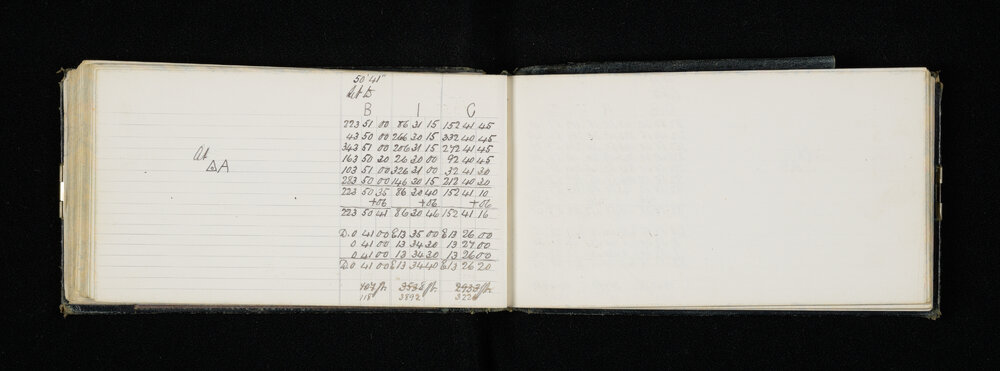 50' 41"
B I C
223 51 00 86 31 15 152 41 45
43 50 00 266 30 15 332 40 45
343 51 00 206 31 15 272 41 45
163 50 30 26 30 00 92 40 45
103 51 00 326 31 00 32 41 30
283 50 00 146 30 15 212 40 30
At
△A
223 50 35 86 30 40 152 41 10
+06 +06 +06
223 50 41 86 30 46 152 41 16
D. 0 41 00 13 35 00 13 26 00
0 41 00 13 34 30 13 27 00
0 41 00 13 34 30 13 26 00
D. 0 41 00 13 34 40 13 26 20
118 3892